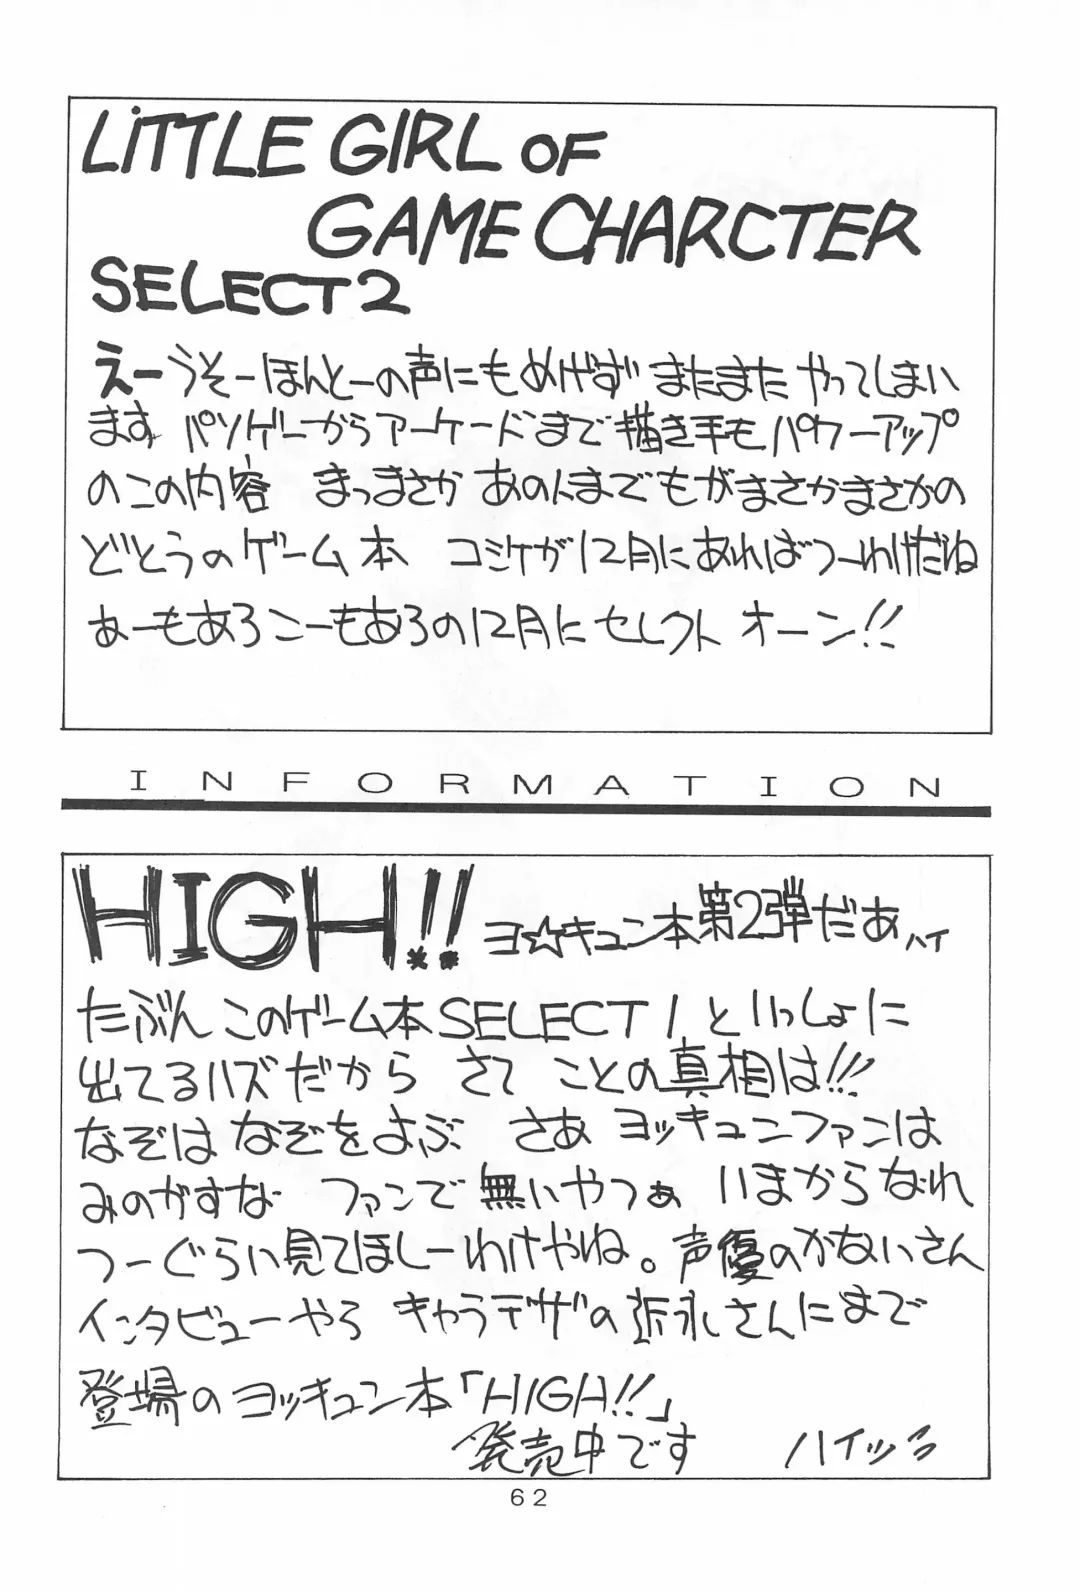 LiTTLE GIRL OF
GAME CHARCTER
SELECT2
えーうそーほんとーの声にもめげず またまた やってしまい
ます パソゲーからアーケードまで描き手もパワーアップ
のこの内容 まっまさか あの人までもがまさかまさかの
どとうのゲーム本 コミケが12月にあればつーわけだね
あーもあろこーもあろの12月にセレクト オーン!!
INFORMATION
HIGH!! ヨ☆キュン本第2弾だあ ハイ
たぶん このゲーム本SELECT1といっしょに
出てるハズだから さて ことの真相は!!!
なぞは なぞをよぶ さあ ヨッキュンファンは
みのがすな ファンで無いやつぁ いまからなれ
つーぐらい見てほしーわけやね。声優のかないさん
インタビューやら キャラデザの 永さんにまで
登場のヨッキュン本「HIGH!!」
発売中です ハイッる
62